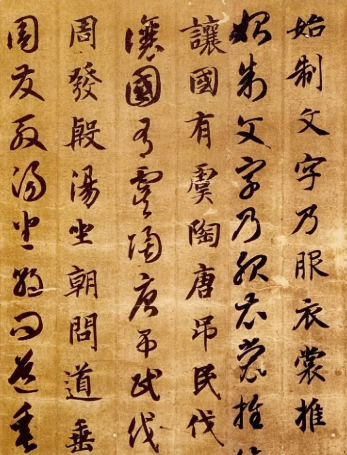 始制文字乃服衣裳推
始制文字乃服衣裳推
讓國有虞陶唐吊民伐
讓國有虞陶唐吊民伐
周發殷湯坐朝問道垂
周發殷湯坐朝問道垂